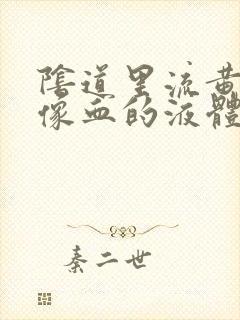 陰道里流黃
像血的液體
秦二世